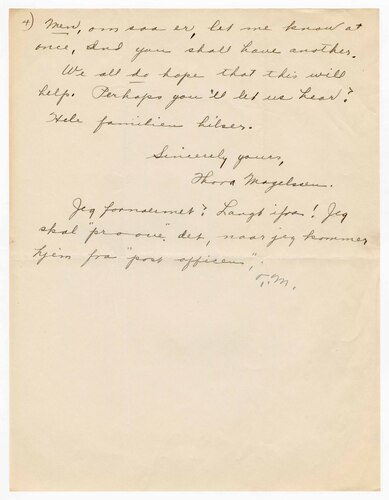 4) Men, om saa er, let me know at
once, and you shall have another.
We all do hope that this will
help. Perhaps you'll let us hear?
Hele familien hilser.
Sincerely yours,
Thora Magelssen.
Jeg fornærmet? Langt ifra! Jeg
skal "prove" det, naar jeg kommer
hjem fra "post officen",
T.M.